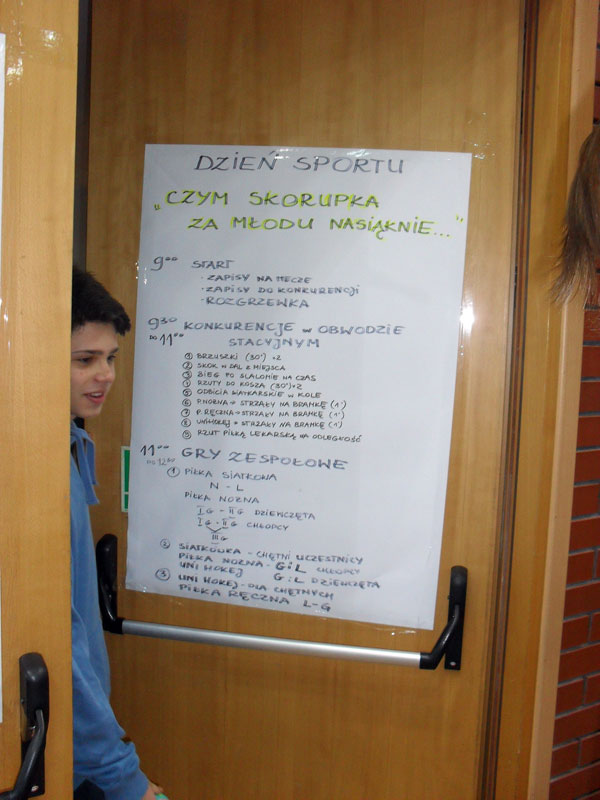 DZIEŃ SPORTU
„CZYM SKORUPKA
ZA MŁODU NASIĄKNIE..."
9⁰⁰ START
- ZAPISY NA MECZE
- ZAPISY DO KONKURENCJI
- ROZGRZEWKA
9³⁰ KONKURENCJE W OBWODZIE
DO 11⁰⁰ STACYJNYM
① BRZUSZKI (30") ×2
② SKOK W DAL Z MIEJSCA
③ BIEG PO SLALOMIE NA CZAS
④ RZUTY DO KOSZA (30")×2
⑤ ODBICIA SIATKARSKIE W KOLE
⑥ P.NOŻNA - STRZAŁY NA BRAMKĘ (1')
⑦ P. RĘCZNA - STRZAŁY NA BRAMKĘ (1')
⑧ UNIHOKEJ - STRZAŁY NA BRAMKĘ (1')
⑨ RZUT PIŁKĄ LEKARSKĄ NA ODLEGŁOŚĆ
11⁰⁰ GRY ZESPOŁOWE
① PIŁKA SIATKOWA
N - L
PIŁKA NOŻNA
I G - II G DZIEWCZĘTA
I G - II G CHŁOPCY
III G
② SIATKÓWKA - CHĘTNI UCZESTNICY
PIŁKA NOŻNA - G:L CHŁOPCY
UNI HOKEJ G:L DZIEWCZĘTA
③ UNI HOKEJ - DLA CHĘTNYCH
PIŁKA RĘCZNA L-G